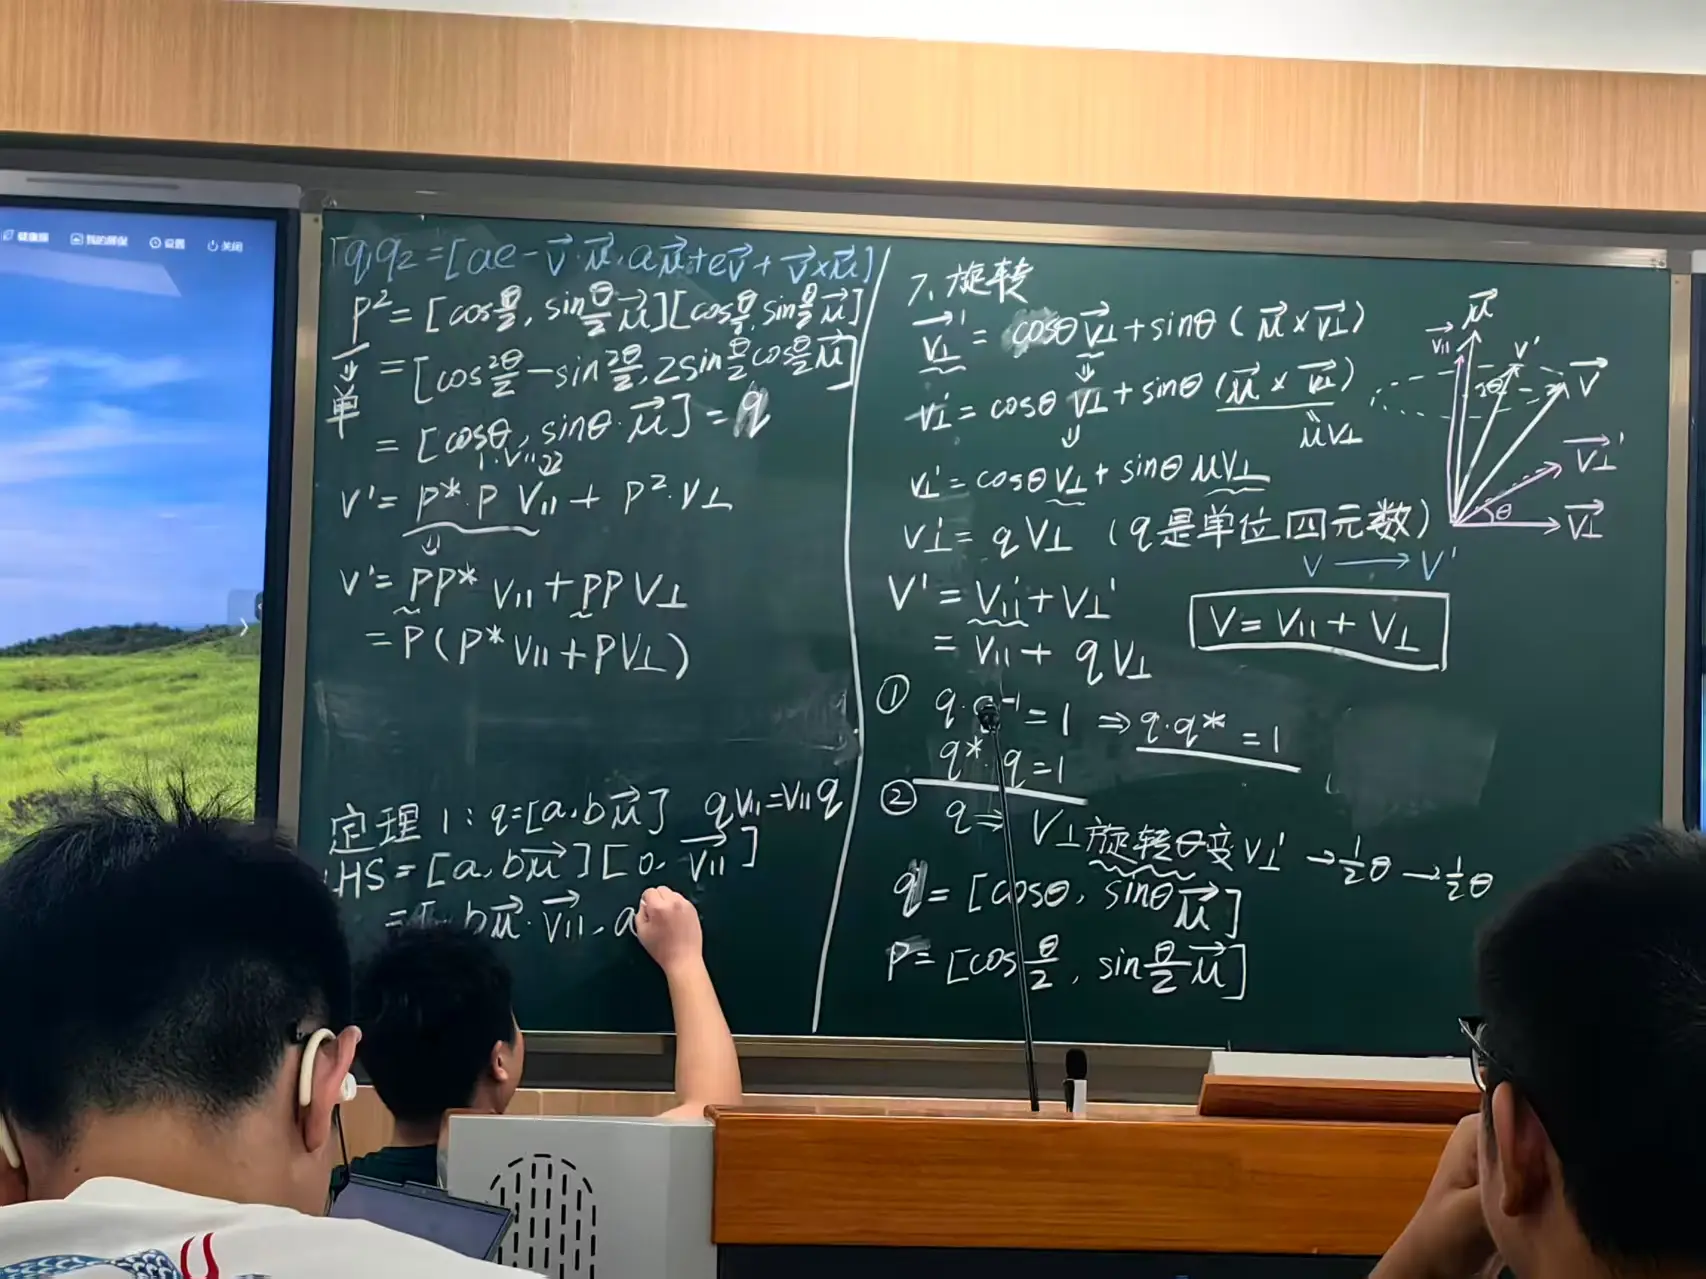 健康屏 我的屏保 设置 关闭
q₁q₂=[ae-v⃗·μ⃗, aμ⃗+ev⃗+v⃗×μ⃗]
p²=[cosθ/2, sinθ/2 μ⃗][cosθ/2, sinθ/2 μ⃗]
⇓ =[cos²θ/2-sin²θ/2, 2sinθ/2 cosθ/2 μ⃗]
单
=[cosθ, sinθ·μ⃗]=q
v'=p*·p v∥+p²·v⊥
⇓
v'=pp* v∥+pp v⊥
=p(p*v∥+pv⊥)
定理1:q=[a,bμ⃗] qv∥=v∥q
LHS=[a,bμ⃗][0,v⃗∥]
=[-bμ⃗·v⃗∥,a
7、旋转
v⃗⊥'=cosθv⃗⊥+sinθ(μ⃗×v⃗⊥)
⇓
v⊥'=cosθ v⊥+sinθ(μ⃗×v⃗⊥)
⇓ μv⊥
v⊥'=cosθv⊥+sinθμv⊥
v⊥'=qv⊥(q是单位四元数)
v→v'
v'=v∥'+v⊥'
=v∥+qv⊥
v=v∥+v⊥
① q·q⁻¹=1⇒q·q*=1
q*·q=1
② q⇒v⊥旋转θ变v⊥'→½θ→½θ
q=[cosθ, sinθμ⃗]
p=[cosθ/2, sinθ/2 μ⃗]
μ⃗
v⃗∥ v'
θ v⃗
v⃗⊥'
θ v⃗⊥